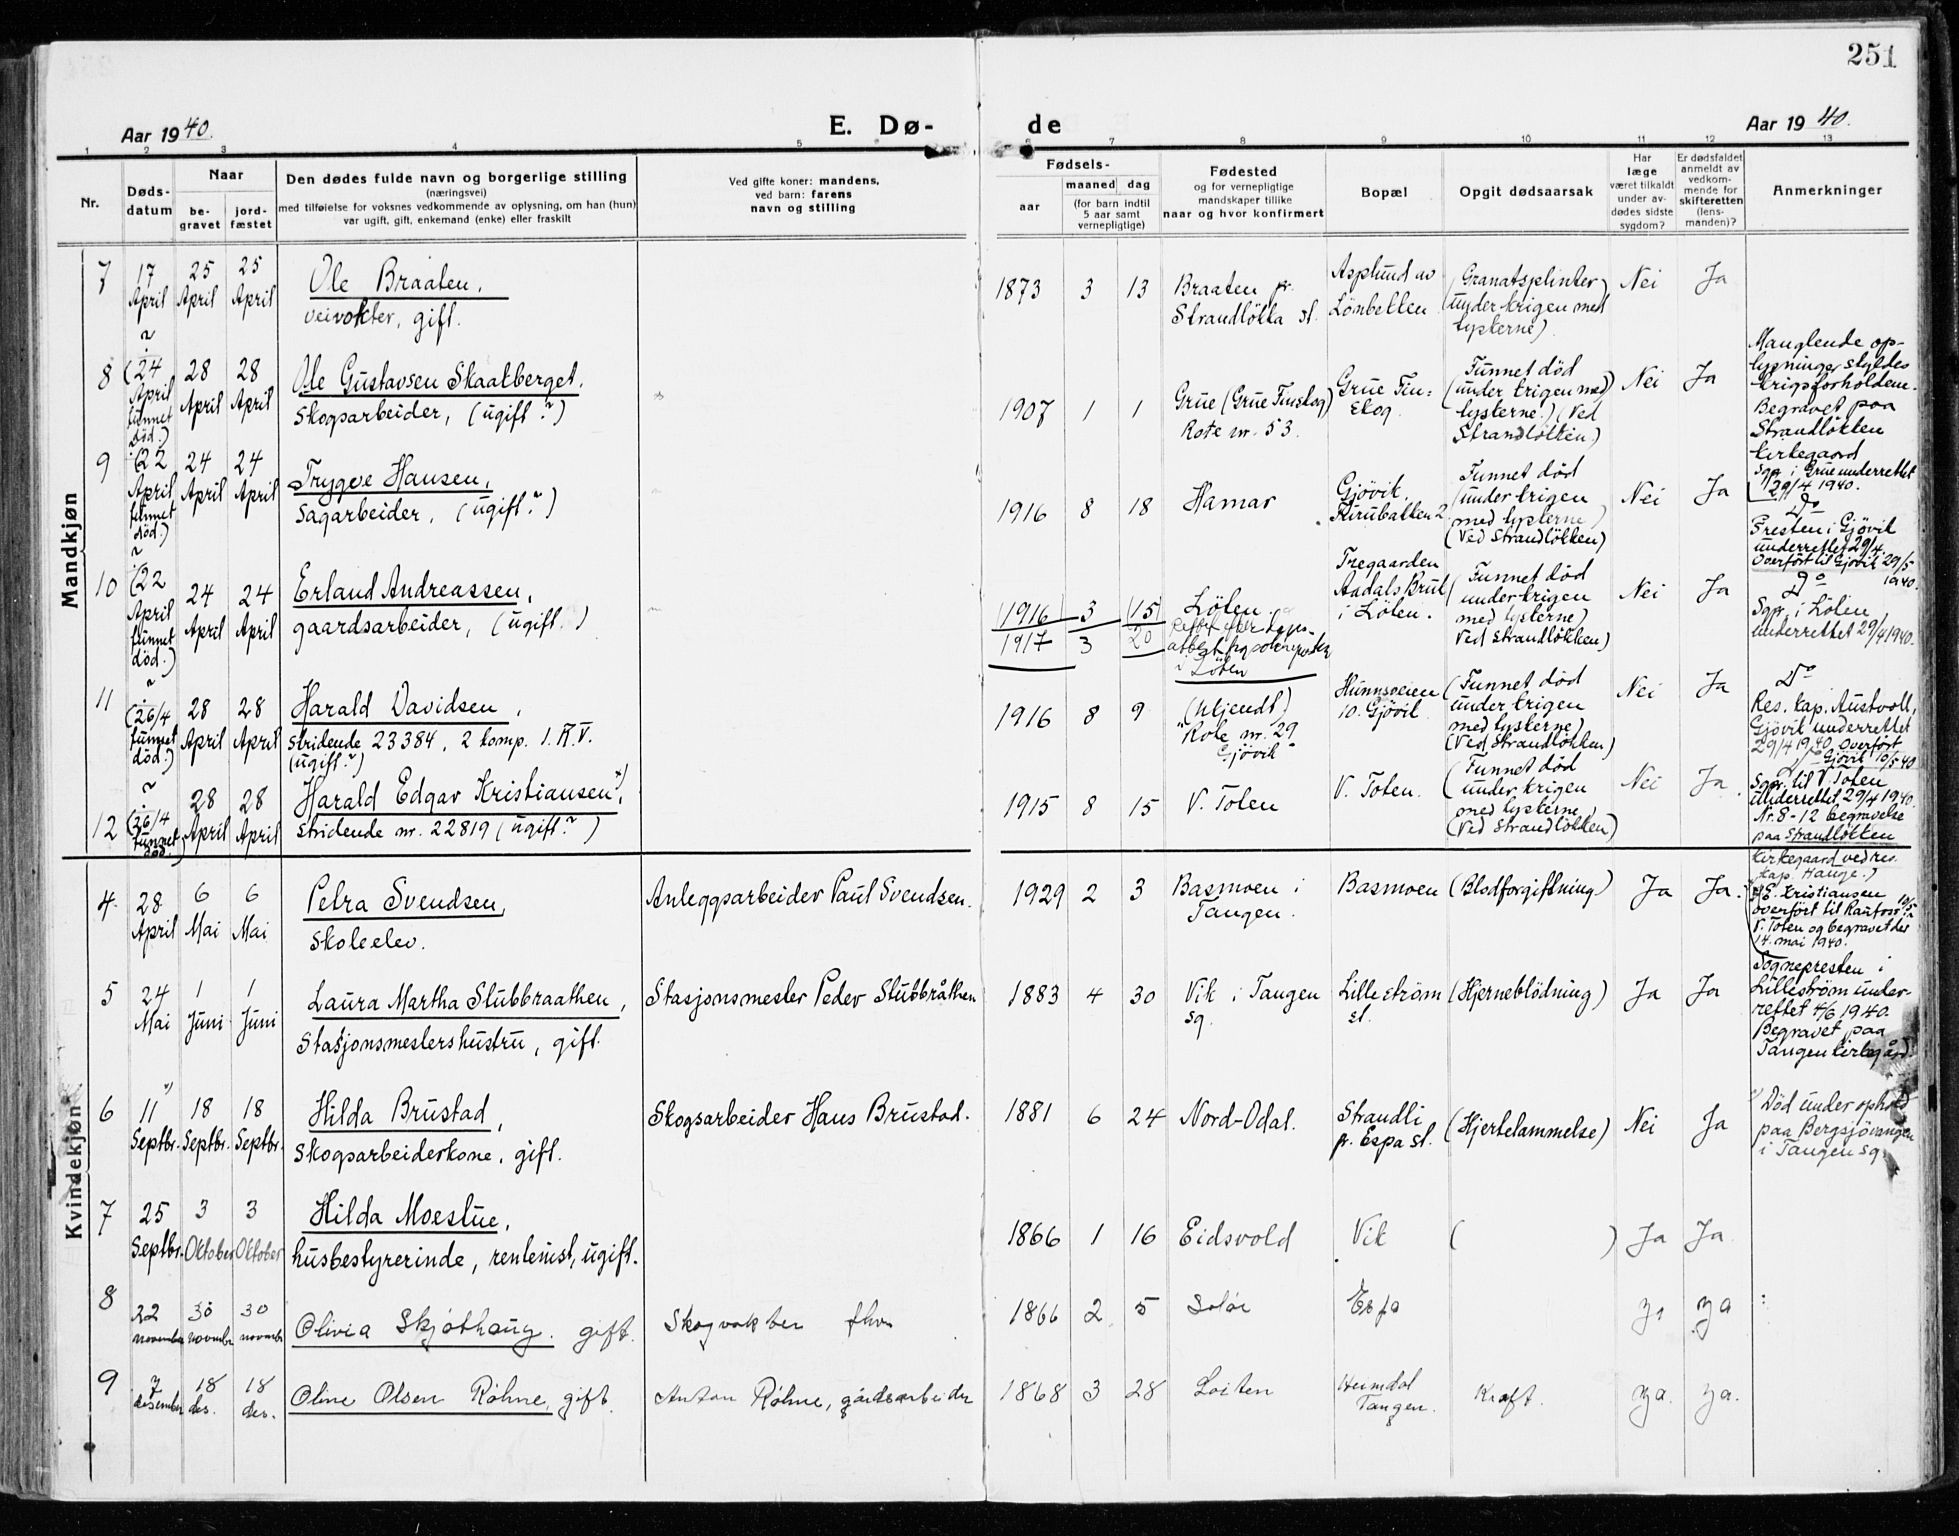 251
Aar 1940.
E. Dø-
de
Aar 1940.
1 2 3 4 5 6 7 8 9 10 11 12 13
Nr.
Døds-
datum
Naar
be-
gravet
jord-
fæstet
Den dødes fulde navn og borgerlige stilling
(næringsvei)
med tilføielse for voksnes vedkommende av oplysning, om han (hun)
var ugift, gift, enkemand (enke) eller fraskilt
Ved gifte koner: mandens,
ved barn: farens
navn og stilling
Fødsels-
aar
maaned
dag
(for barn indtil
5 aar samt
vernepligtige)
Fødested
og for vernepligtige
mandskaper tillike
naar og hvor konfirmert
Bopæl
Opgit dødsaarsak
Har
læge
været tilkaldt
under av-
dødes sidste
sygdom?
Er dødsfaldet
anmeldt av
vedkom-
mende for
skifteretten
(lens-
manden)?
Anmerkninger
Mandkjøn
7
17
April
25
April
25
April
Ole Braaten,
veivokter, gift.
1873 3 13
Braaten pr.
Strandløkka st.
Asplund av
Lønbekken
(Granatsplinter
under krigen med
tyskerne)
Nei
Ja
8
?
(24
April
funnet
død.)
28
April
28
April
Ole Gustavsen Skaalberget,
skogsarbeider, (ugift?)
1907 1 1
Grue (Grue Finskog)
Rote nr. 53.
Grue Fin-
skog.
(Funnet død
under krigen med
tyskerne.) (Ved
Strandløkken.)
Nei
Ja
Manglende op-
lysninger skyldes
krigsforholdene.
Begravet paa
Strandløkken
kirkegaard
Sgp. i Grue underrettet
29/4 1940.
9
?
(22
April
funnet
død.)
24
April
24
April
Trygve Hansen,
sagarbeider, (ugift?)
1916 8 18
Hamar
Gjövik.
Kirubakken 2
Funnet død
(under krigen
med tyskerne)
(Ved Strandløkken)
Nei
Ja
Do
Presten i Gjövik
underrettet 29/4.
Overført til Gjövik 29/5
1940.
10
?
(22
April
funnet
død.)
24
April
24
April
Erland Andreassen,
gaardsarbeider, (ugift.)
1916 3 15
1917 3 20
Löten.
i Löten
Tregaarden
Aadals Bruk
i Löten.
(Funnet død
under krigen
med tyskerne)
Ved Strandløkken)
Nei
Ja
Do
Sgp. i Löten
underrettet 29/4 1940.
11
?
(26/4
funnet
død.)
28
April
28
April
Harald Davidsen,
stridende 23384, 2 komp. I.R.V.
(ugift?)
1916 8 9
(Ukjendt)
"Rote nr. 29
Gjövik"
Hunnsveien
10. Gjövik
(Funnet død
under krigen
med tyskerne)
(Ved Strandløkken)
Nei
Ja
Do
Res. kap. Austvoll,
Gjövik underrettet
29/4 1940. Overført
Gjövik 10/5 40
12
?
(26/4
funnet
død.)
28
April
28
April
Harald Edgar Kristiansen x),
stridende nr. 22819 (ugift?)
1915 8 15
V. Toten
V. Toten.
(Funnet død
under krigen
med tyskerne)
(Ved Strandløkken)
Nei
Ja
Do
Sgpr. til V. Toten
underrettet 29/4 1940.
Nr. 8-12 begravelse
paa Strandløkken
kirkegaard ved res.
kap. Hauge.)
x) E. Kristiansen
overført til Raufoss 10/5
V. Toten og begravet der
14. mai 1940.
Kvindekjøn
4.
28
April
6
Mai
6
Mai
Petra Svendsen,
skoleelev.
Anleggsarbeider Paul Svendsen.
1929 2 3
Basmoen i
Tangen.
Basmoen
(Blodforgiftning)
Ja
Ja.
5
24
Mai
1
Juni
1
Juni
Laura Martha Stubbraathen,
Stasjonsmestershustru, gift.
Stasjonsmester Peder Stubbråthen
1883 4 30
Vik i Tangen
sg.
Lillestrøm
st.
(Hjerneblödning)
Ja
Ja
Sognepresten i
Lillestrøm under-
rettet 4/6 1940.
Begravet paa
Tangen kirkegård.
6
11 x)
Septbr.
18
Septbr.
18
Septbr.
Hilda Brustad,
skogsarbeiderkone, gift.
Skogsarbeider Hans Brustad.
1881 6 24
Nord-Odal.
Strandli
p. Espa st.
(Hjertelammelse)
Nei
Ja
x) Død under ophold
paa Bergsjövangen
i Tangen sg.
7
25
Septbr.
3
Oktober
3
Oktober
Hilda Moestue,
husbestyrerinde, rentenist, ugift.
1866 1 16
Eidsvold
Vik
( )
Ja
Ja
8
22
november
30
novembr
30
novembr
Olivia Skjøthaug. gift.
Skogvokter fhv
1866 2 5
Solør
Espa
Ja
Ja
9
7
desember
18
des.
18
des.
Oline Olsen Røhne, gift.
Anton Røhne, gårdsarbeider
1868 3 28
Løiten
Heimdal
Tangen.
Kræft.
Ja.
Ja.